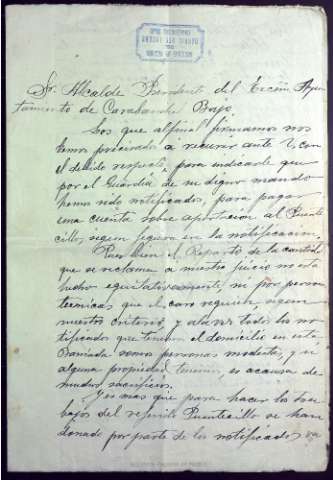 Sr. Alcalde Presidente del Excmo Ayun-
tamiento de Carabanchel Bajo
Los que al final firmamos nos
hemos precisado a recurrir ante V. con
el debido respeto, para indicarle que
por el Guardia de su digno mando
hemos sido notificados, para pagar
una cuenta sobre aportacion al Puente-
cillo, segun figura en la notificacion.
Pues bien el Reparto de la cantidad
que se reclama a nuestro juicio no esta
hecho equitativamente, ni por personas
tecnicas que el caso requiere, segun
nuestro criterio, y a la vez todos los no-
tificados que tenemos el domicilio en esta
Barriada somos personas modestas, y si
alguna propiedad tenemos, es a causa de
muchos sacrificios.
Y es mas que para hacer los tra-
bajos del referido Puentecillo se han
donado por parte de los notificados